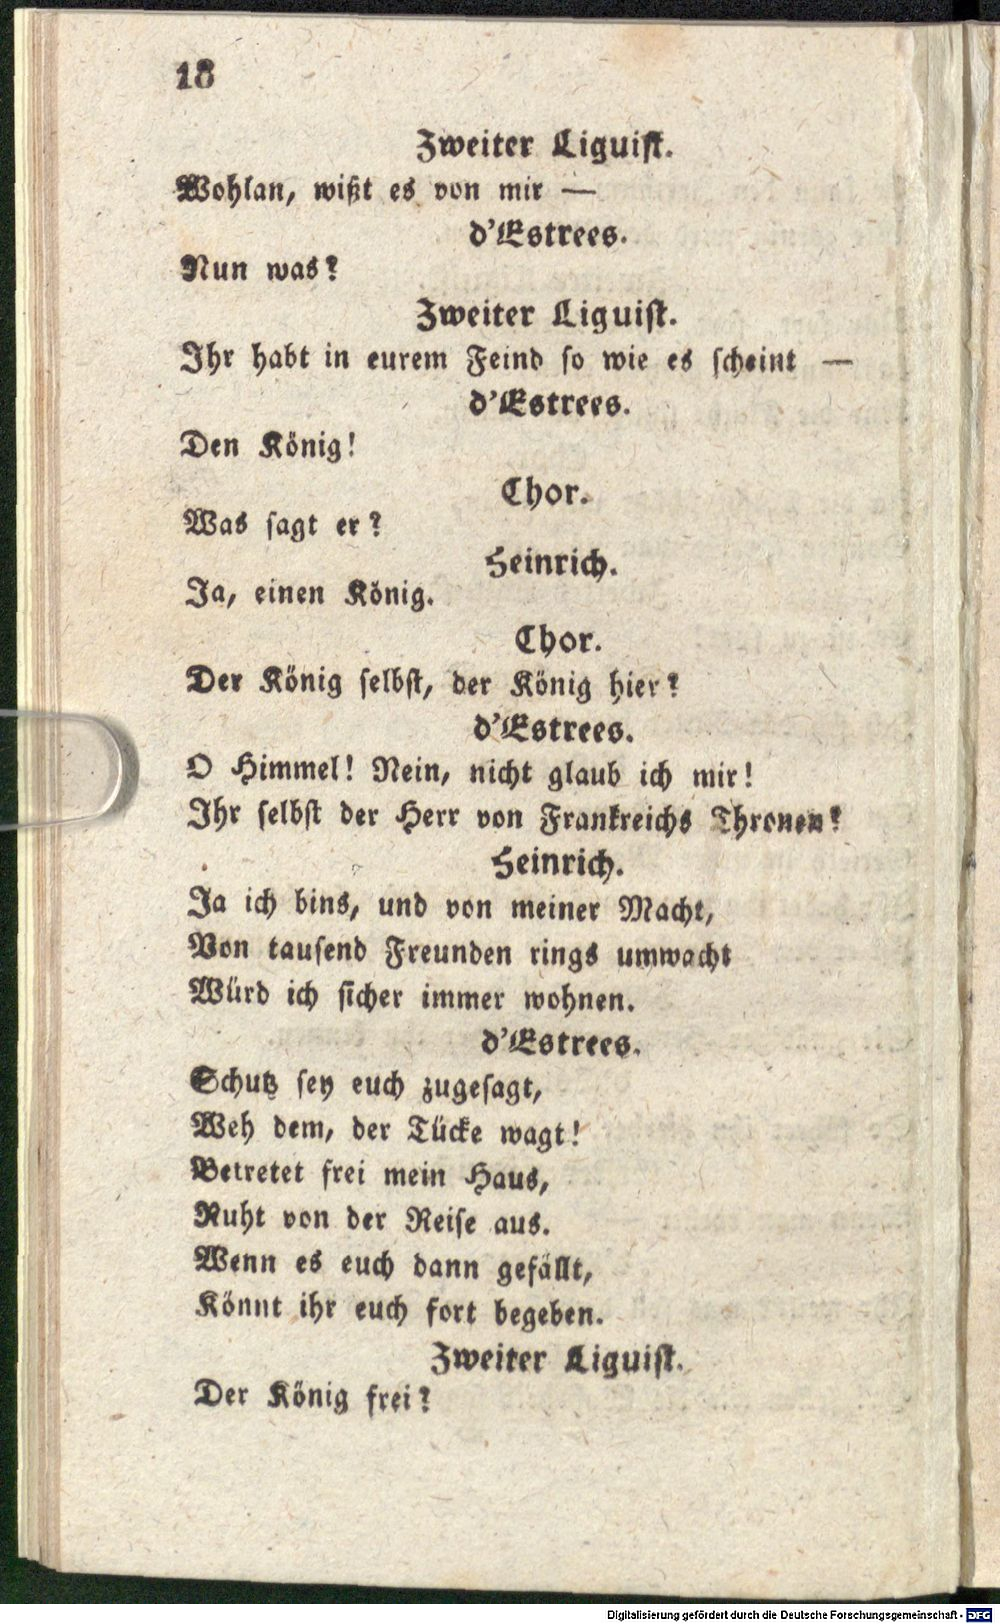 18
Zweiter Liguist.
Wohlan, wißt es von mir —
d'Estrees.
Nun was?
Zweiter Liguist.
Ihr habt in eurem Feind so wie es scheint —
d'Estrees.
Den König!
Chor.
Was sagt er?
Heinrich.
Ja, einen König.
Chor.
Der König selbst, der König hier?
d'Estrees.
O Himmel! Nein, nicht glaub ich mir!
Ihr selbst der Herr von Frankreichs Thronen?
Heinrich.
Ja ich bins, und von meiner Macht,
Von tausend Freunden rings umwacht
Würd ich sicher immer wohnen.
d'Estrees.
Schutz sey euch zugesagt,
Weh dem, der Tücke wagt!
Betretet frei mein Haus,
Ruht von der Reise aus.
Wenn es euch dann gefällt,
Könnt ihr euch fort begeben.
Zweiter Liguist.
Der König frei?
Digitalisierung gefördert durch die Deutsche Forschungsgemeinschaft - DFG